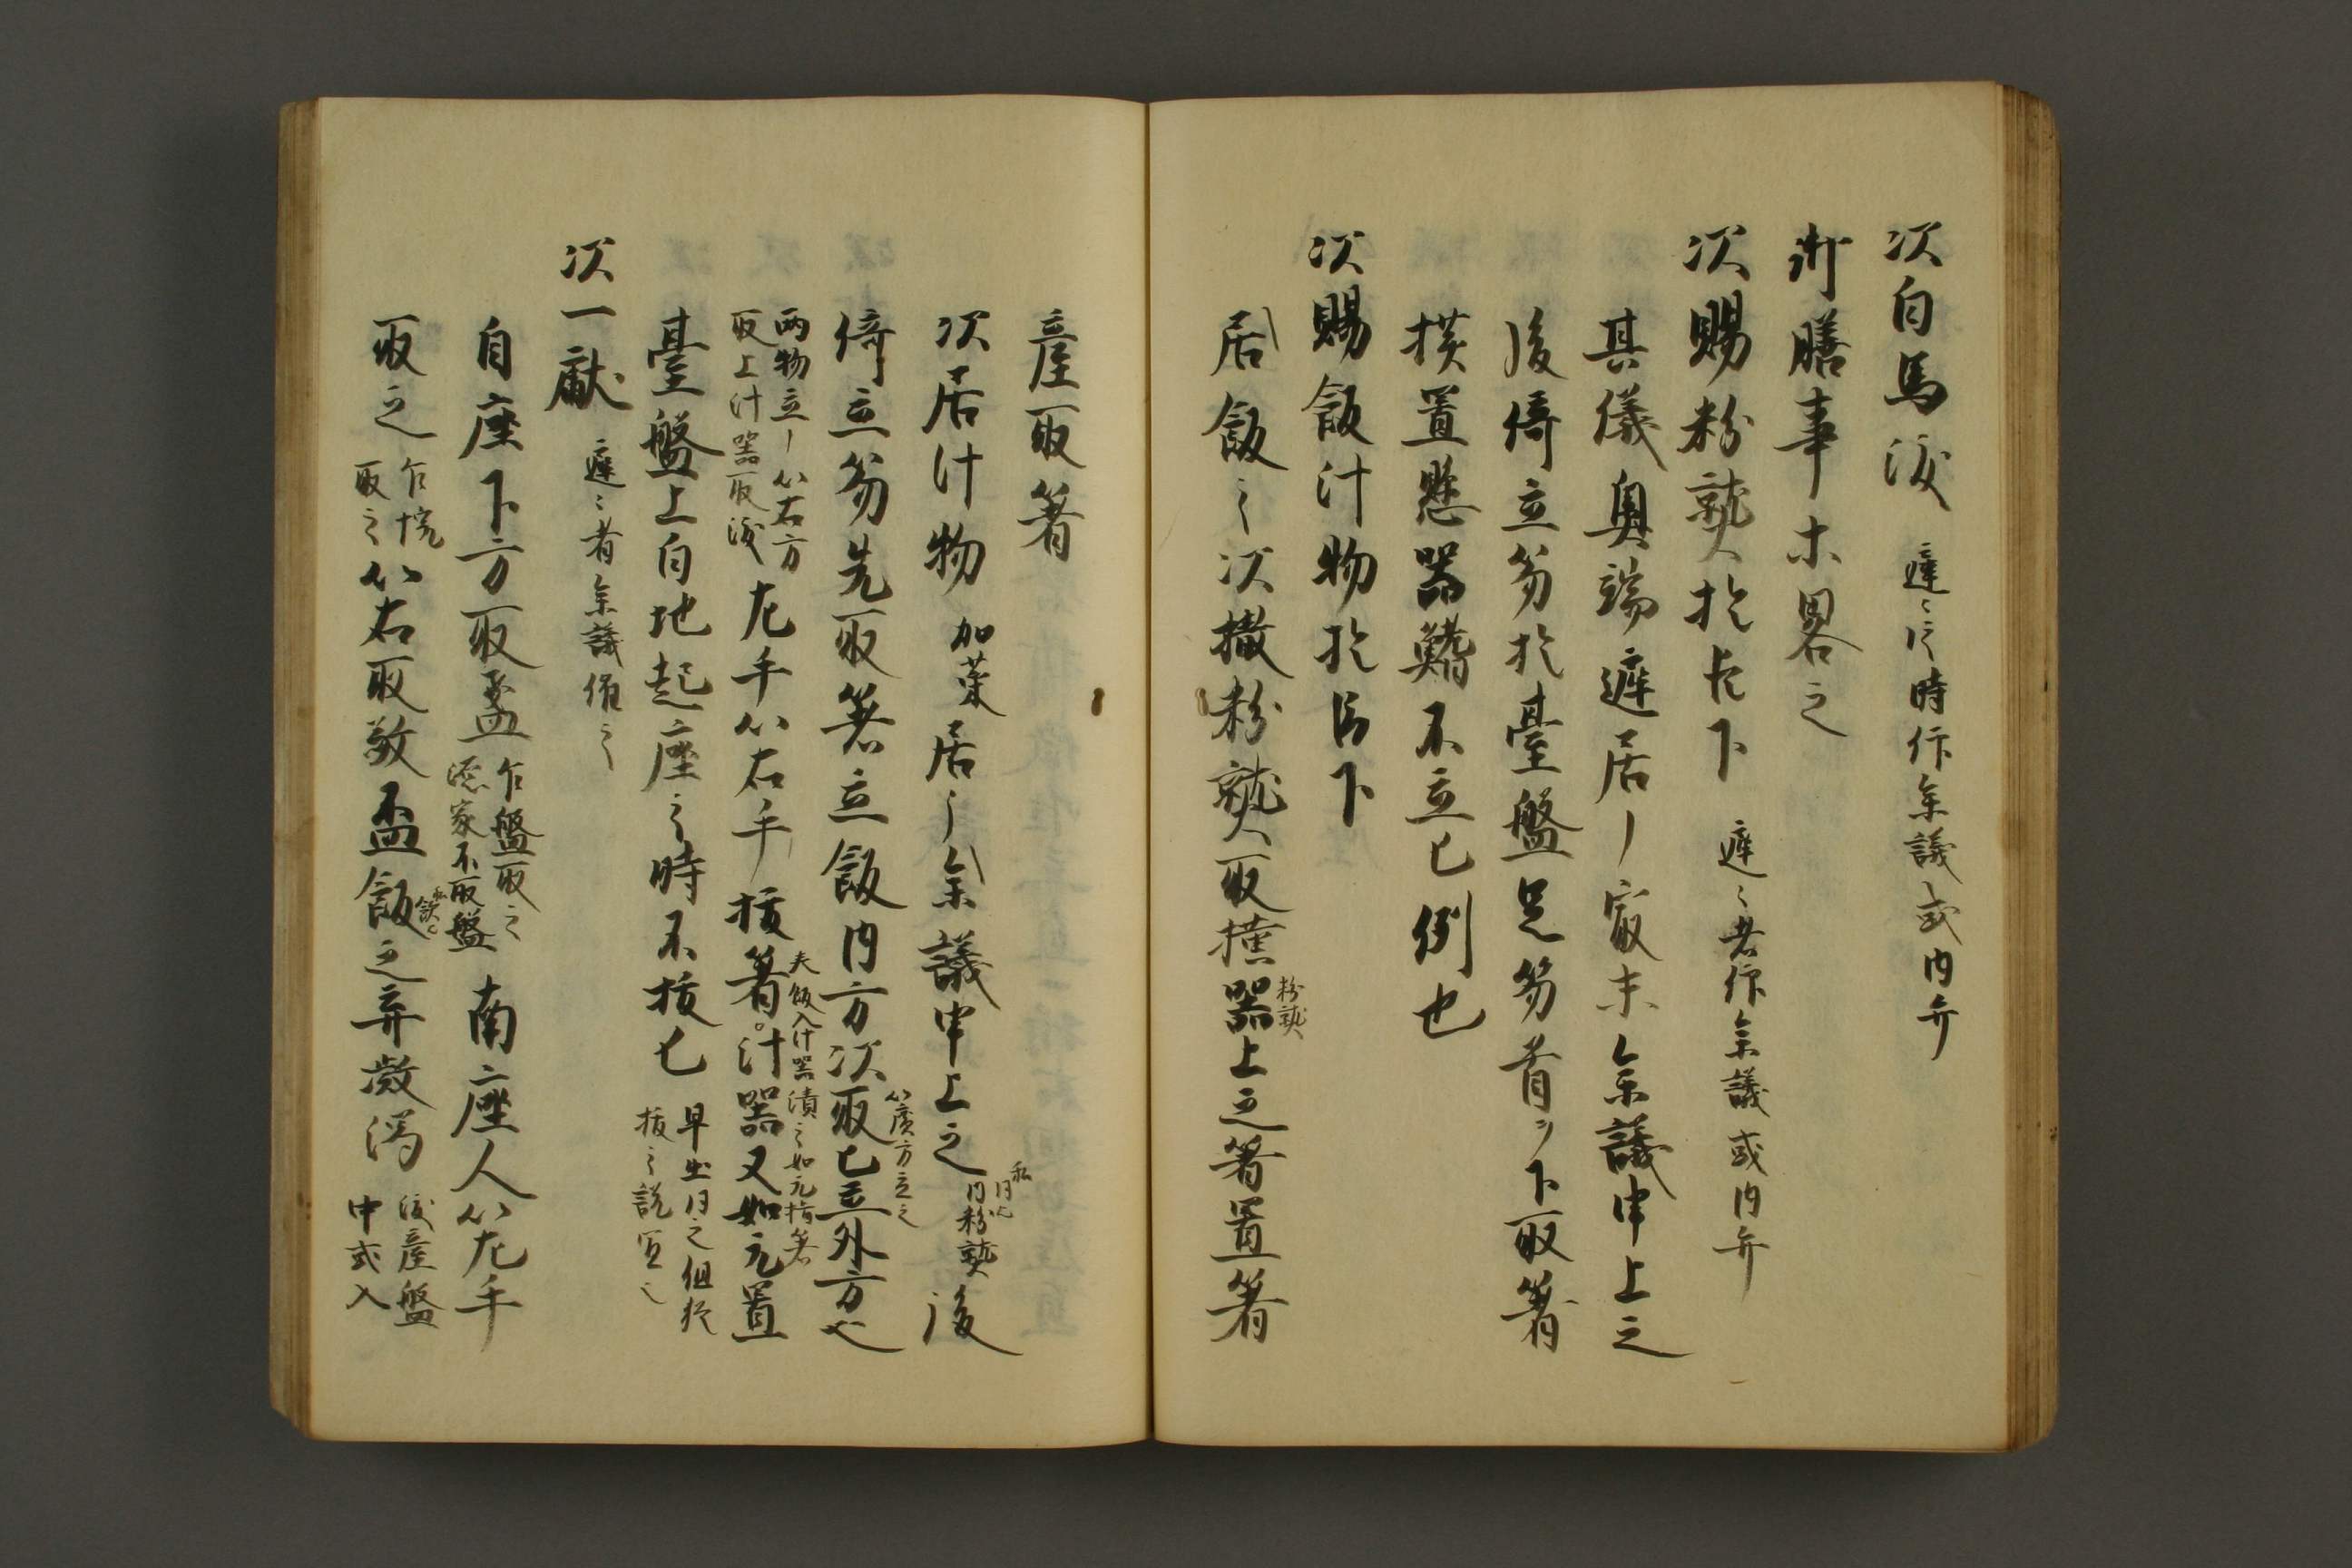 次白馬渡 遅々之時仰参議或内弁
御膳事ホ畧之
次賜粉熟於臣下 遅々者仰参議或内弁
其儀奥端遅居了寂末参議申上之
後倚立笏於臺盤足笏首ヲ下取箸
横置懸器鰭不立匕例也
次賜飯汁物於臣下
居飯々次撤粉熟取撞器粉熟上之箸置箸
臺取箸
次居汁物加菜居了参議申上之私同粉熟後
倚立笏先取箸立飯内方次取匕立外方也以廣方立之
両物立了以右方
取上汁器取渡左手以右手抜箸夾飯入汁器漬之如元指箸汁器又如元置
臺盤上白地起座之時不抜匕 早出同之但於
抜之説宜之
次一献 遅々者参議催之
自座下方取盃乍盤取之
家不取盤 南座人以左手
取之乍
取之以右取敬盃飯之弃瀝渡座盤
中或入